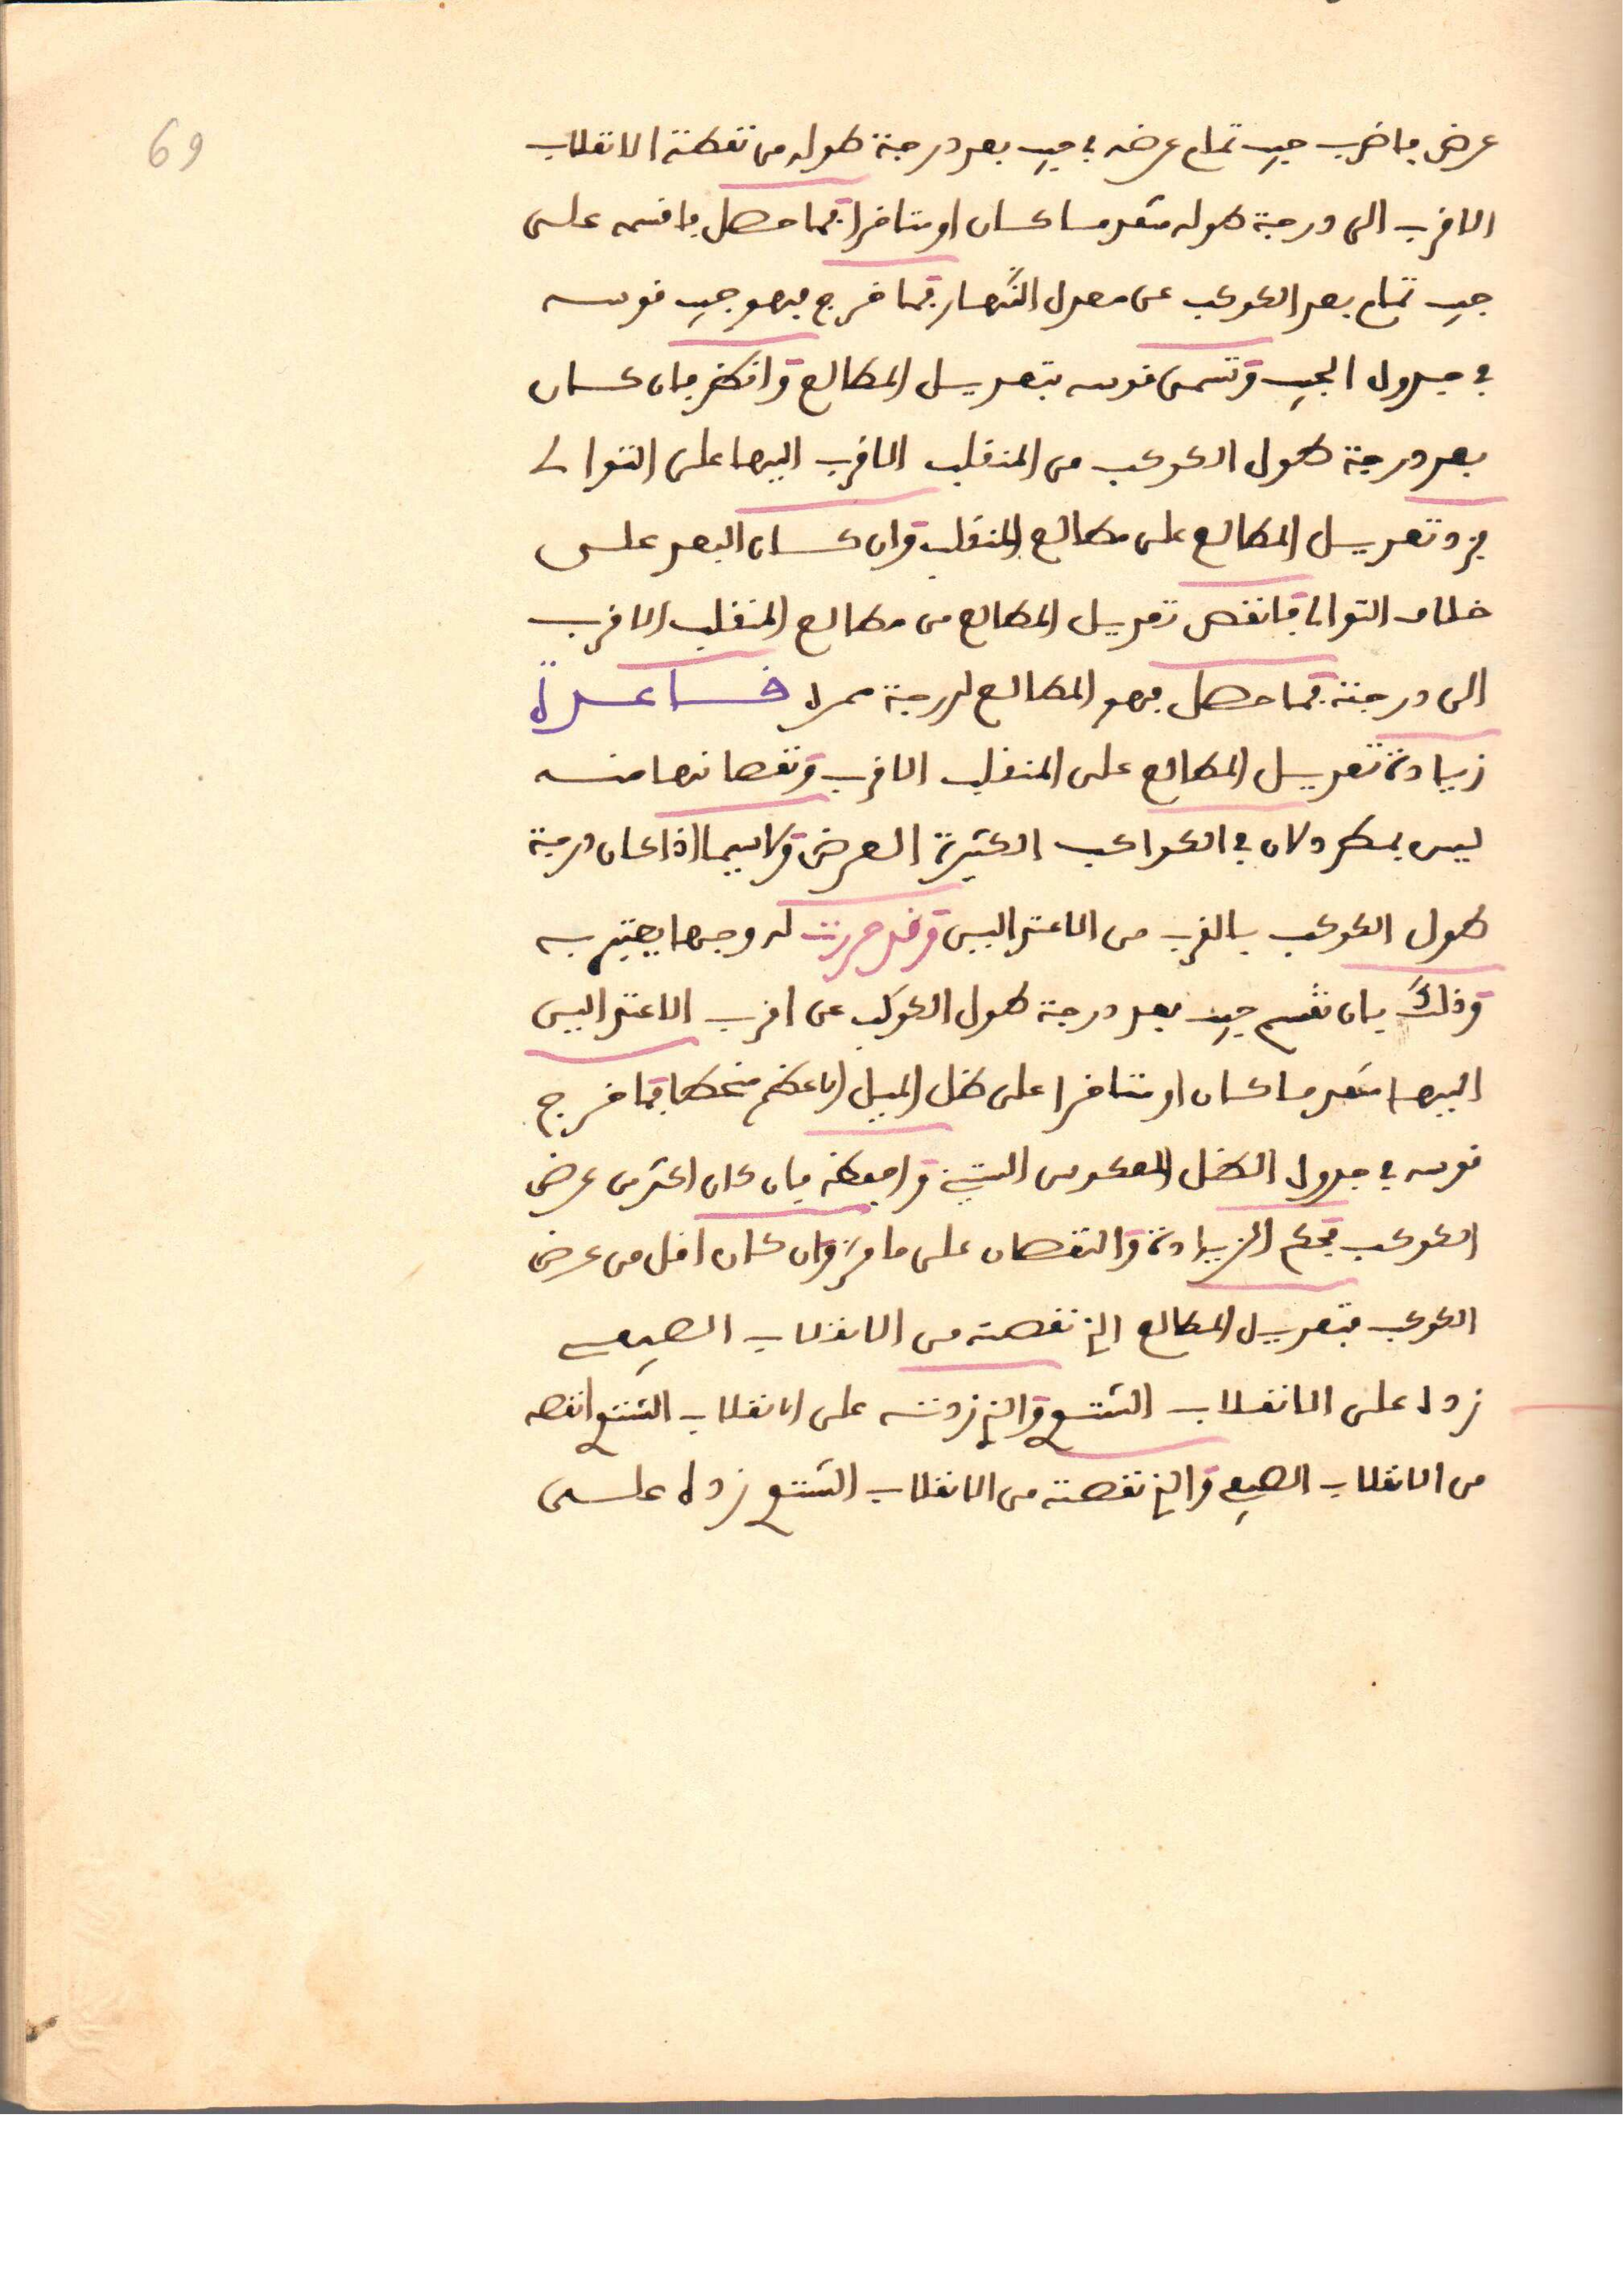 69
عرض فاضرب جيب تمام عرضه في جيب بعد درجة طوله من نقطة الانقلاب
الاقرب الى درجة طوله متقدما كان او متاخرا فما حصل فاقسمه على
جيب تمام بعد الكوكب عن معدل النهار فما خرج فهو جيب قوسه
في جدول الجيب وتسمى قوسه بتعديل المطالع وانظر فان كان
بعد درجة طول الكوكب من المنقلب الاقرب اليها على التوالي
فزد تعديل المطالع على مطالع المنقلب وان كان البعد على
خلاف التوالي فانقص تعديل المطالع من مطالع المنقلب الاقرب
الى درجته فما حصل فهو المطالع لدرجة ممره فاعدة
زيادة تعديل المطالع على المنقلب الاقرب ونقصانها منه
ليس بمطرد لان في الكواكب الكثيرة العرض ولاسيما اذا كان درجة
طول الكوكب بالقرب من الاعتدالين وقد حررت له وجها يعتبر به
وذلك بان تقسم جيب بعد درجة طول الكوكب عن اقرب الاعتدالين
اليها متقدما كان او متاخرا على ظل الميل الاعظم منحطا فما خرج
قوسه في جدول الظل المعكوس الستيني واحفظه فان كان اكثر من عرض
الكوكب فحكم الزيادة والنقصان على ما مر وان كان اقل من عرض
الكوكب فتعديل المطالع الذي نقصته من الانقلاب الصيفي
زده على الانقلاب الشتوي والذي زدته على الانقلاب الشتوي انقصه
من الانقلاب الصيفي والذي نقصته من الانقلاب الشتوي زده على